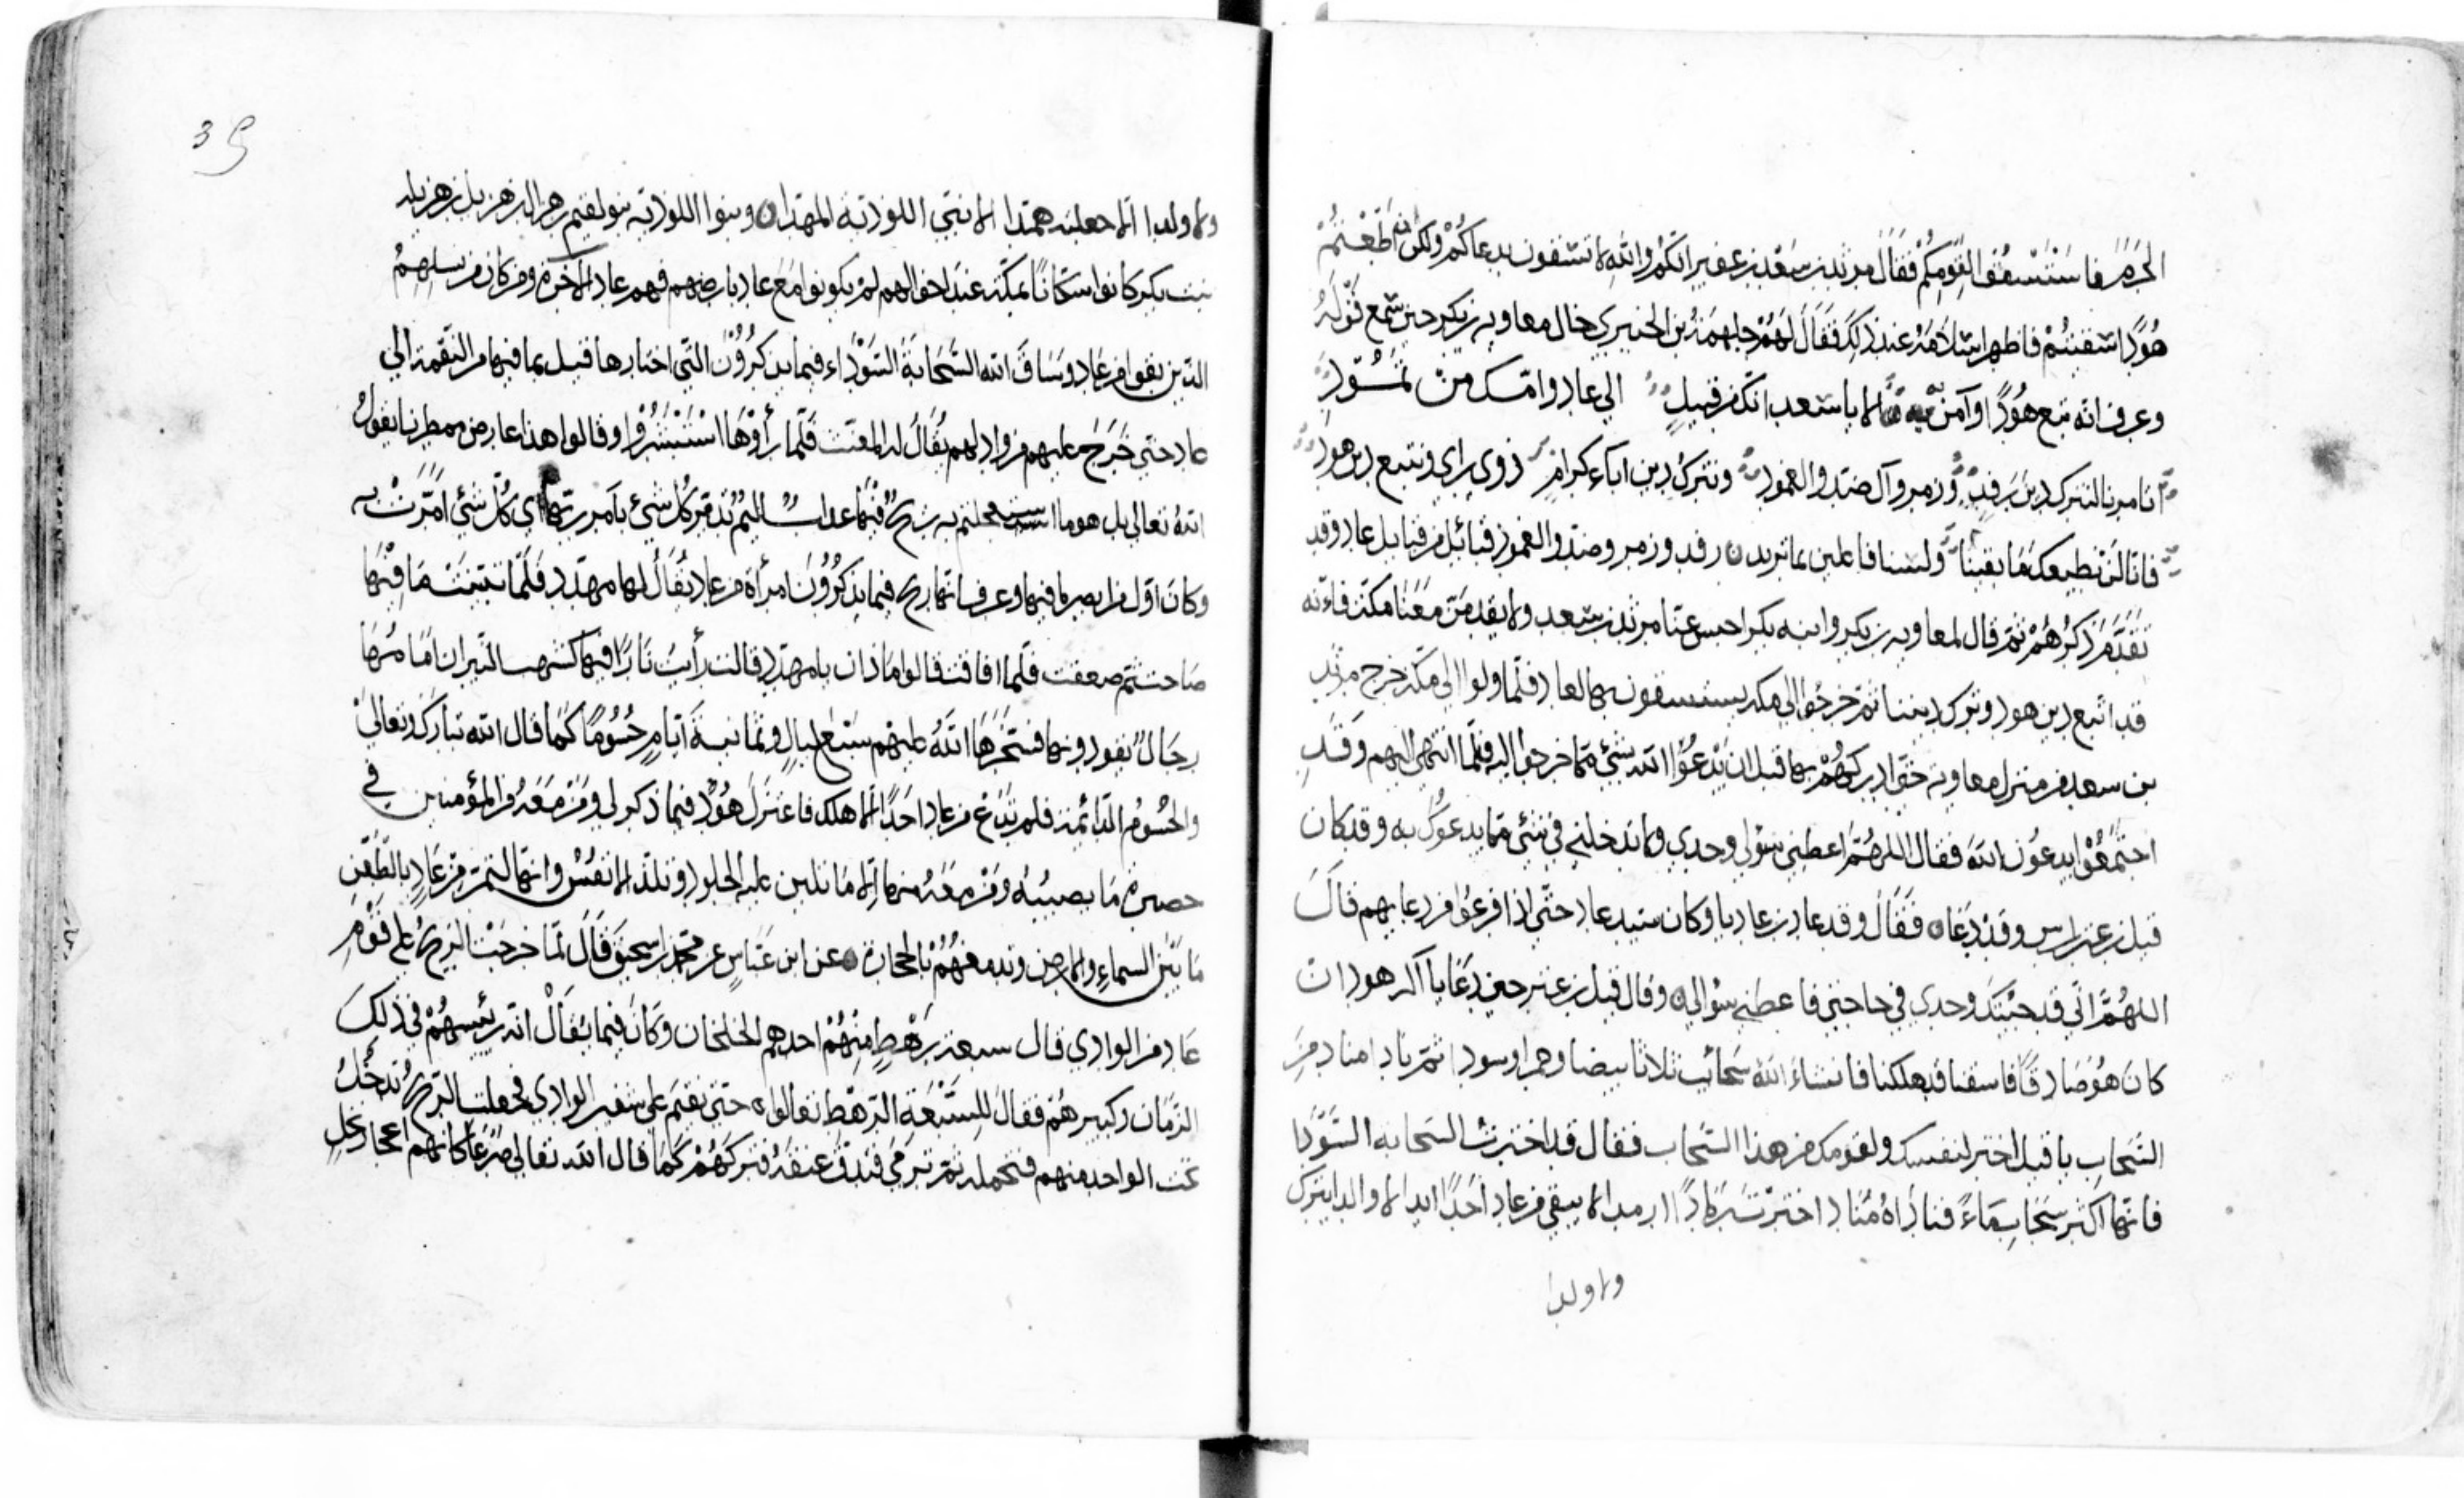 الحَرَمَ فاستَسْقُوا لقَومِكُم فقَالَ مرثد بن سَعْد بن عفير انّكُمْ واللهِ لا تسقون بدعاكُمْ ولكن ان اَطَعْتُمْ
هُودًا اسقيتُمْ فاظهر اسْلامَهُ عند ذَلِكَ فَقَالَ لهُمْ جلهمَةُ بن الخيبري خال معاويه بن بكر حين سَمع قَوْلَهُ
وعرف انه تبع هُودًا وآمن به الا يا سعد انّك من قبيلٍ الي عاد وامّك من ثمُودِ
اتامرنا لنترك دين رَفدٍ وزمر وآل صدّ والعمود ونتركُ دين اباء كرامٍ ذوى راي ونتبع دين هود
فانّا لَنْ نطيعك مَا بقينا ولسنا فاعلين بما تريد ٥ رفد وزمر وصدّ والعمود قبائل من قبايل عاد وقد
تقَدَّمَ ذكرُهُمْ ثمّ قال لمعاويه بن بكر وابنه بكر احبس عنّا مرثد بن سعد ولا يقدمَنّ معَنَا مكّة فاءنّه
قد اتبع دين هود وترك ديننا ثمّ خرجُوا الي مكه يستسقون بها لعاد فلّما ولوا الي مكّة خرج مرثد
بن سعد من منزل معاويه حتي ادركهُمْ بها قبل ان يَدْعُوا الله بشئ ممّا خرجوا اليه فلّما انتهى اليهم وقَد
اجتمَعُوْا يدعوُن اللهَ فقال اللهُمَّ اعطني سؤلي وحدي ولا تدخلني في شئ ممّا يدعوُكَ به وقد كان
قيل بن عنز راس وفد عاد ٥ فقَالَ وفد عاد وكان سَيد عاد حتّي اذا فرغوا من دعايهم قالَ
اللهُمَّ انّي قد جئتكَ وحدي في حاجتي فاعطني سؤالي ٥ وقال قيل بن عنز حين دَعَا يا الَه هود ان
كان هُودٌ صَادقًا فاسقنا قد هلكنا فانشاءَ اللهُ سَحائب ثلاثا بيضا وحمرا وسودا ثمّ ناداه مناد مِنَ
السّحَابِ يا قيل اختر لنفسك ولقومك من هذا السّحاب فقال قد اخترت السّحابه السّوَدَا
فانّها اكثر سَحَاب مَاءً فنادَاهُ مُنَاد اخترْتَ رَمَادًا رمددا لا يبقي من عاد احَدًا ابدا لا والدا يترك
ولا ولدا
39
ولا ولدا الّا جعلته همّدا الا بنتي اللوذيّة المهتدا ٥ وبنوا اللوذيّه بنو لقيم بن هزال بن هزيل بن هزيله
بنت بكر كانوا سكّانًا بمكّة عند اخوالهم لمْ يكونوا مَعَ عاد بارضهم فهم عاد الاخرة ومن كان من نسلِهِمُ
الذّين بقوا من عَاد وسَاقَ الله السّحَابَةَ السَّوْدَاء فيما يذكروُنَ التّي اختارها قيل بما فيها من النّقمة الي
عاد حتّي خَرَجَ عليهم من واد لهم يُقَالُ له المغيث فلّما رأوْهَا استَبْشروُا وقالوا هذا عارض ممطرنا يقولُ
اللهُ تعالي بل هو ما استعجلتم به ريحٌ فيْهَا عذابٌ اليمٌ تُدَمّر كُلّ شئٍ بأمر ربّها اي كُلّ شئٍ امرَتْ به
وكانَ اوّل من ابصر ما فيها وعرف انها ريح فيما يذكرُوْنَ امرأة من عاد يُقَالُ لها مهدد فلَمّا تَبيّنَتْ مَا فيْهَا
صَاحت ثم صعقت فلّما افاقت قالوا مَاذا رايت يا مهدد قالت رأيتُ نارًا فيها كشهب النّيران امَامُهَا
رجَالٌ يقودونها فسَخّرَهَا اللهُ عليْهمْ سَبْعَ ليالٍ وثمانيةَ ايّامٍ حُسُومًا كَمَا قال الله تبارك وتعاليٰ
والحُسُومُ الدّائمة فلم تدَعْ من عاد احَدًا الّا هلك فاعتزلَ هُودٌ فيما ذكر لي ومَنْ مَعَهُ من المؤمنين في
حصيرة مَا يصيبُهُ ومَنْ معَهُ منها الّا مَا تلين عليه الجلود وتلذّ الانفُسُ وانّها لتمرّ من عَادٍ بالظّعْن
مَا بَيْنَ السماءِ والارض وتدمغهُمْ بالحجارة ٥ عن ابن عَبّاسٍ عن محمّد بن اسحق قَالَ لمّا خرجَتْ الريحُ علي قَوْمِ
عَاد من الوادي قال سبعة رَهْطٍ منْهُمْ احدهم الخلخان وكَانَ فيما يُقَالُ انّه رَئيسهُمْ في ذلكَ
الزّمان وكبيرهُمْ فقالَ للسَبْعَة الرّهْط تعَالوا ٥ حتي نقيَم علي شفير الوادي فجعلت الرّيحُ تدخُلُ
تحت الواحد منهم فتحمله ثمّ ترمي فتدقّ عنقَهُ فتركَهُمْ كمَا قال الله تعالي صَرْعَا كَانّهم اعجاز نخلٍ